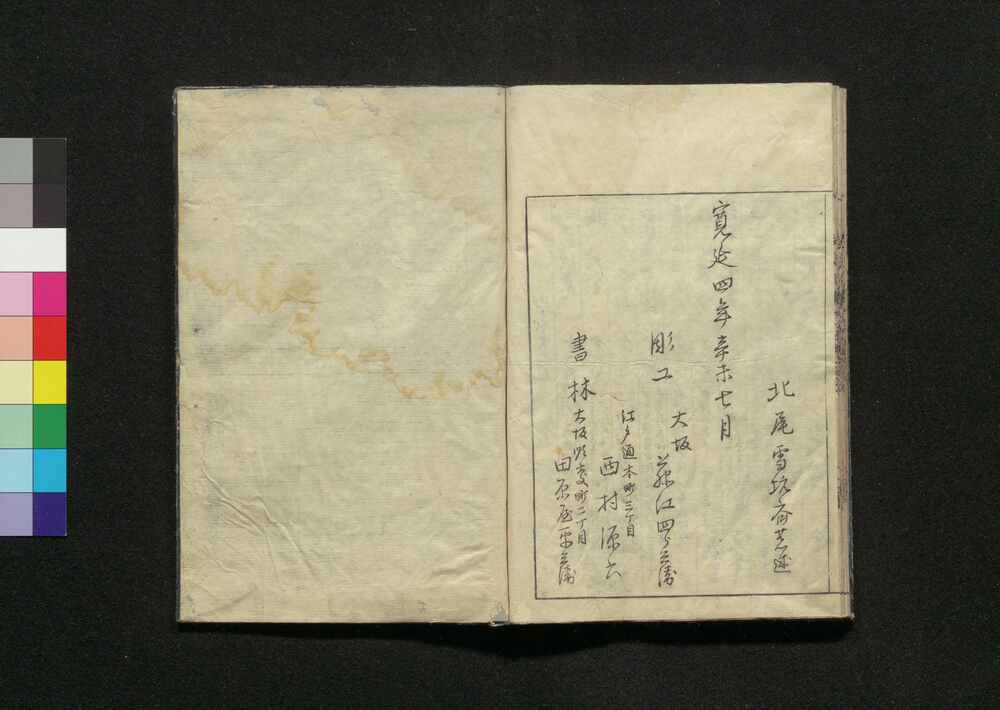 北尾雪坑斎書述
寛延四年辛未七月
彫工 大坂 藤江四郎兵衛
江戸通本町三丁目
西村源六
書林 大坂順慶町二丁目
田原屋平兵衛